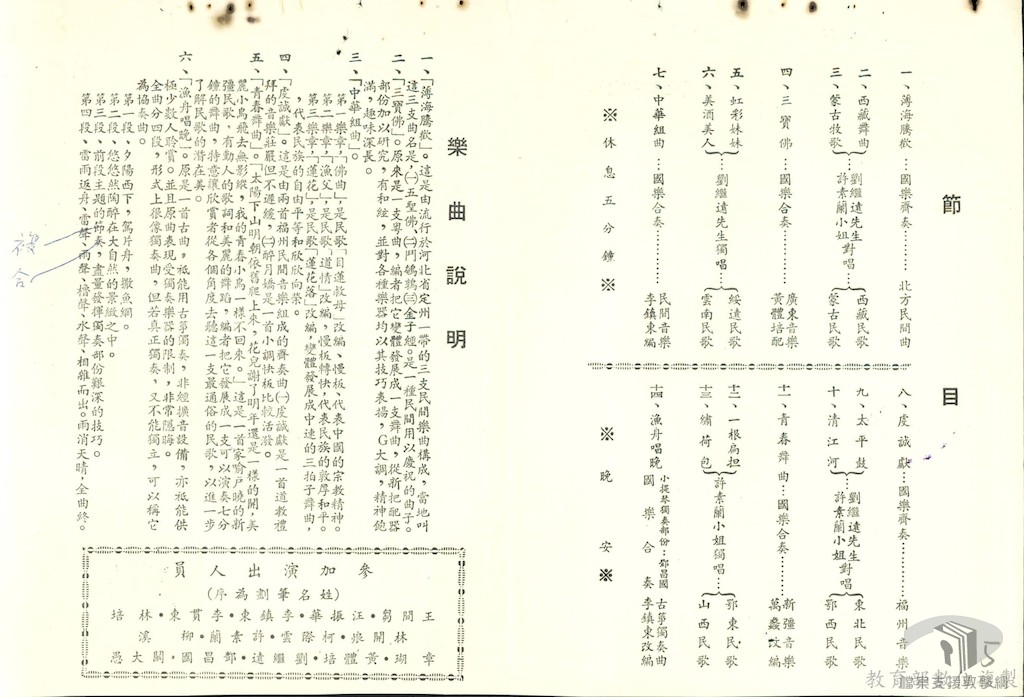 節目
一、薄海騰歡…國樂齊奏………北方民間曲
二、西藏舞曲 劉繼遠先生 許素蘭小姐 對唱…西藏民歌
三、蒙古牧歌 蒙古民歌
四、三寶佛…國樂合奏………廣東音樂 黃體培配
五、虹彩妹妹 劉繼遠先生獨唱…綏遠民歌
六、美酒美人 雲南民歌
七、中華組曲…國樂合奏………民間音樂 李鎮東編
※休息五分鐘※
八、虔誠獻…國樂齊奏………福州音樂
九、太平鼓 劉繼遠先生 許素蘭小姐 對唱…東北民歌
十、清江河 鄂西民歌
十一、青春舞曲…國樂合奏………新疆音樂 萬蠡改編
十二、一根扁担 許素蘭小姐獨唱…鄂東民歌
十三、繡荷包 山西民歌
十四、漁舟唱晚 小提琴獨奏部份:鄧昌國 國樂合奏 古箏獨奏曲 李鎮東改編
※晚安※
樂曲說明
一、「薄海騰歡」。這是由流行於河北省定州一帶的三支民間樂曲構成,當地叫
這三支曲名是㈠五聖佛、㈡鬥鵪鶉㈢金子經。是一種民間用以慶祝的曲子。
二、「三寶佛」。原來是一支粵曲,編者把它變體發展成一支舞曲,從新把配器
部份加以研究,有和絃,並對各種樂器均以其技巧表揚,G大調,精神飽
滿,趣味深長。
三、「中華組曲」。
第一樂章「佛曲」,是民歌「目蓮救母」改編、慢板、代表中國的宗教精神。
第二樂章,「漁父」,是民歌「道情」改編,慢板轉快,代表民族的敦厚和平。
第三樂章,「蓮花」,是民歌「蓮花落」改編,變體發展成中速的三拍子舞曲,
,代表民族的自由平等和欣欣向榮。
四、「虔誠獻」。這是由兩首福州民間音樂組成的齊奏曲㈠虔誠獻是一首道教禮
拜的音樂莊嚴但不遲緩,㈡醉月嬌是一首小調快板比較活潑。
五、「青春舞曲」。「太陽下山明朝依舊爬上來,花兒謝了明年還是一樣的開,美
麗小鳥飛去無影縱,我的青春小鳥一樣不回來。」這是一首家喻戶曉的新
疆民歌,有動人的歌詞和美麗的舞蹈,編者把它發展成一支可以演奏七分
鐘的舞曲,特意讓欣賞者從各個角度去聽這一支最通俗的民歌,以進一步
了解民歌的潛在美。
六、「漁舟唱晚」。原是一首古曲,祇能用古箏獨奏,非經擴音設備,亦祇能供
極少數人聆賞。並且原曲表現受獨奏樂器的限制,非常隱晦。
全曲分四段,形式上很像獨奏曲,但若真正獨奏,又不能獨立,可以稱它
為協奏曲。
第一段、夕陽西下,駕片舟,撒魚網。
第二段、悠悠然陶醉在大自然的景緻之中。
第三段、前段主題的節奏,盡量發揮獨奏部份艱深的技巧。
第四段、雷雨返舟,雷聲、雨聲、櫓聲、水聲、相雜而出。雨消天晴,全曲終。
複合
參加演出人員
(姓名筆劃為序)
王間芻•汪振華•李鎮東•李貫東•林培
林開垠•柯際雲•許素蘭•柳溪
章瑚•黃體培•劉繼遠•鄧昌國,關大愚
教育部數位複製
檔案支援教學網